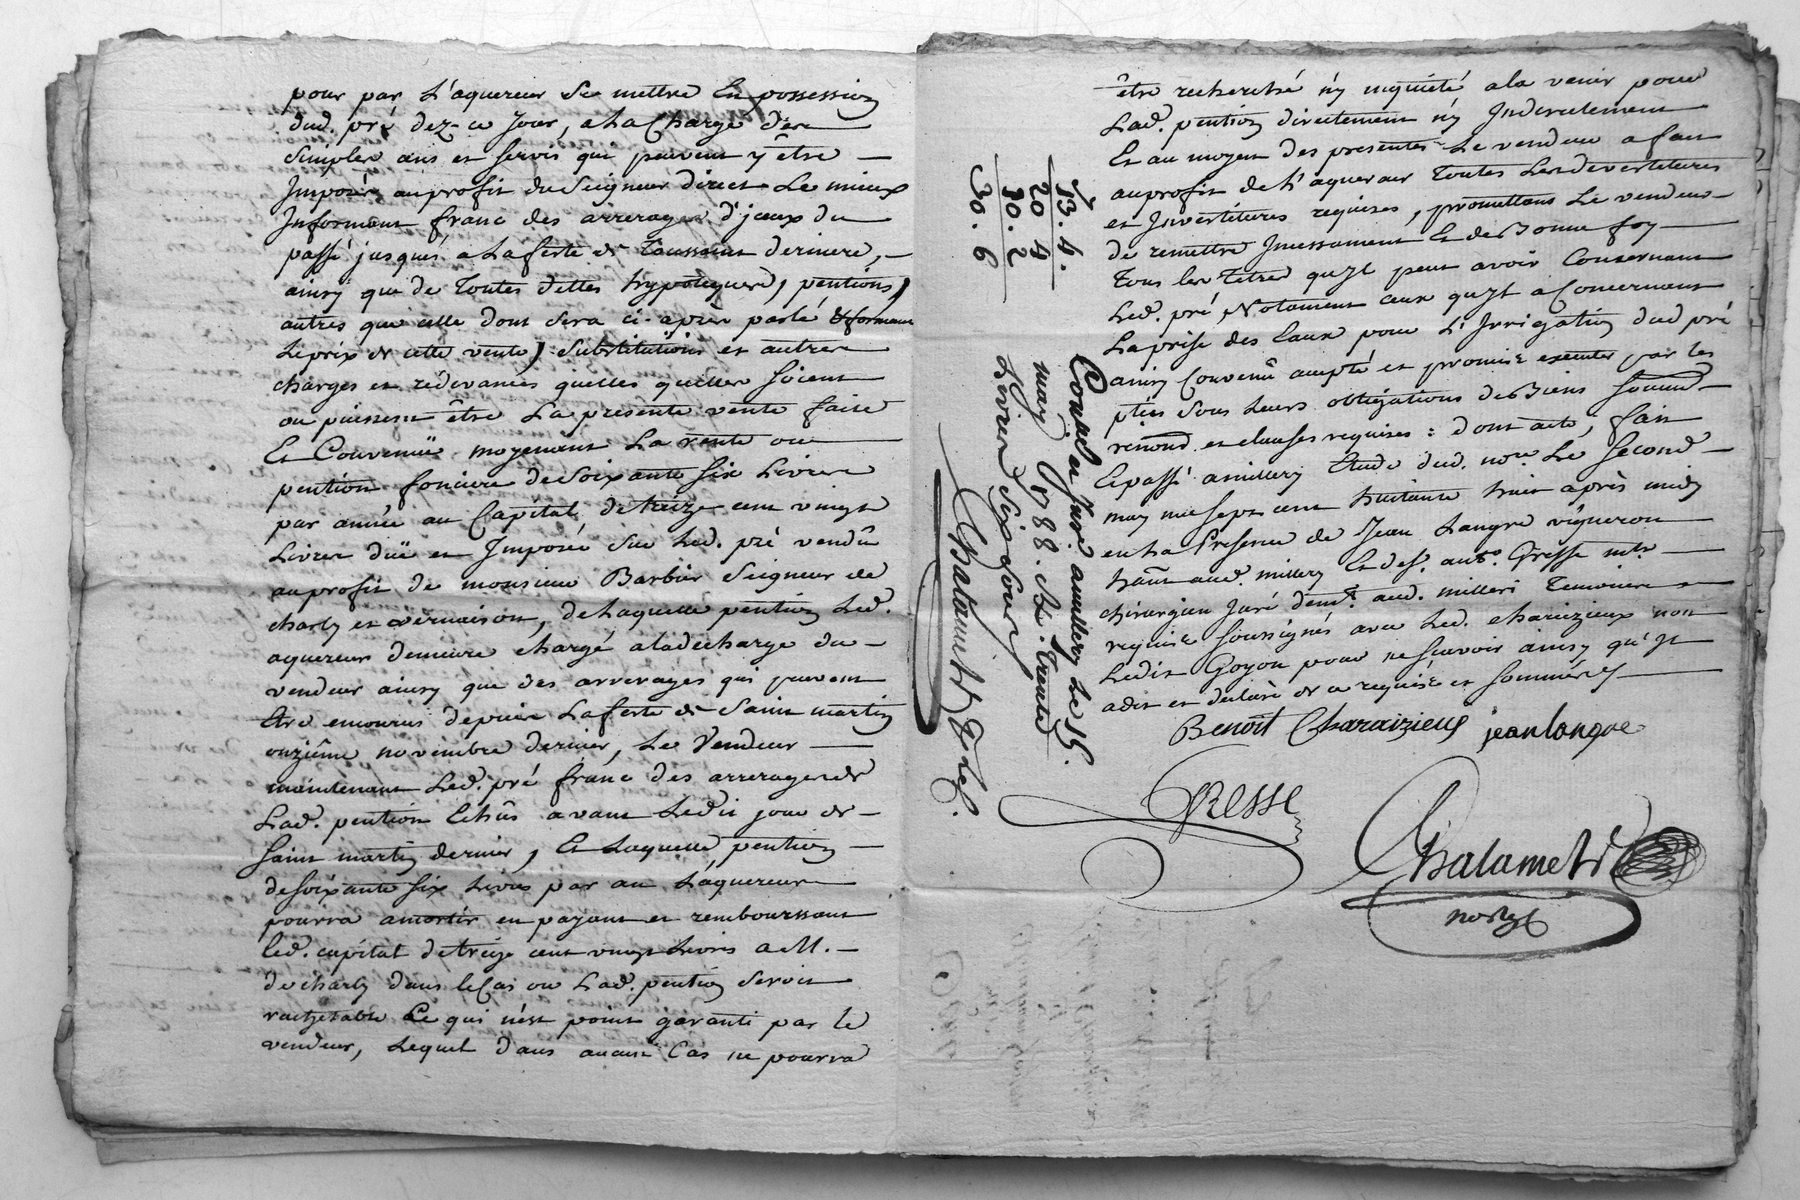 pour par L'aquereur Se mettre En possession
dud. pré dez-ce Jour, a La Charge des
Simples cens et servis qui peuvent y être
Imposés au profit du Seigneur direct Le mieux
Informant franc des arrerages d'jceux du
passé jusques a La feste de Toussaint derniere,
ainsy que de Toutes dettes hypoteques, pentions,
autres que celle dont Sera ci-après parlé & formant
Le prix de cette vente, Substitutions et autres
charges et redevances quelles quelles soient
ou puissent être La presente vente faite
Et Convenüe moyenant La rente ou
pention fonciere de Soixante Six Livres
par année au Capital de treize cent vingt
Livres düe et Imposée Sur Led. pré vendû
au profit de monsieur Barbier Seigneur de
charly et vernaison, de Laquelle pention Led.
aquereur demeure chargé a la décharge du
vendeur ainsy que des arrerages qui peuvent
être encourus depuis La feste de Saint martin
onziême novembre dernier, Le Vendeur
maintenant Led. pré franc des arrerages de
Lad. pention Echûs avant Ledit jour de
Saint martin dernier, Et Laquelle pention
de Soixante Six Livres par an L'aquereur
pourra amortir en payant et remboursant
led. capital de treize cent vingt Livres a M.
de charly dans le Cas ou Lad. pention Seroit
rachetable Ce qui n'est point garanti par le
vendeur, Lequel dans aucun Cas ne pourra
13. 4.
20. 4
30. 2
30. 6
Controllé a millery Le 15.
may 1788. R. trente
Livres Six Sols
Chalamel
être recherché n'y inquiété a la venir pour
Lad. pention directement n'y Indirectement
Et au moyen des presentes Le vendeur a fait
au profit de L'aquereur Toutes Les devetitures
et Jnvestitures requises, promettant Le vendeur
de remettre Jncessament Et de Bonne foy
Tous les Titres qu'jl peut avoir Concernant
Led. pré, Notament ceux qu'jl a Concernant
La prise des Eaux pour L'Jrrigation dud pré
ainsy Convenû accepté et promis executer par les
pties Sous Leurs obligations de Biens Soumd
renond. et clauses requises: dont acte, fait
Et passé a millery Etude dud. nore. Le Second
may mil Sept cent huitante huit après midy
en La Presence de Jean Langre vigneron
habt. aud. millery Et de s. ant. Gresse mtre
chirurgien Juré demt. aud. milleri Temoins
requis Soussignés avec Led. charuizieux non
Ledit Goyon pour ne Scavoir ainsy qu'jl
a dit et declaré de ce requis et Sommé
Benoît Charaizieux jean langre
GRESSE
Chalamel
nore